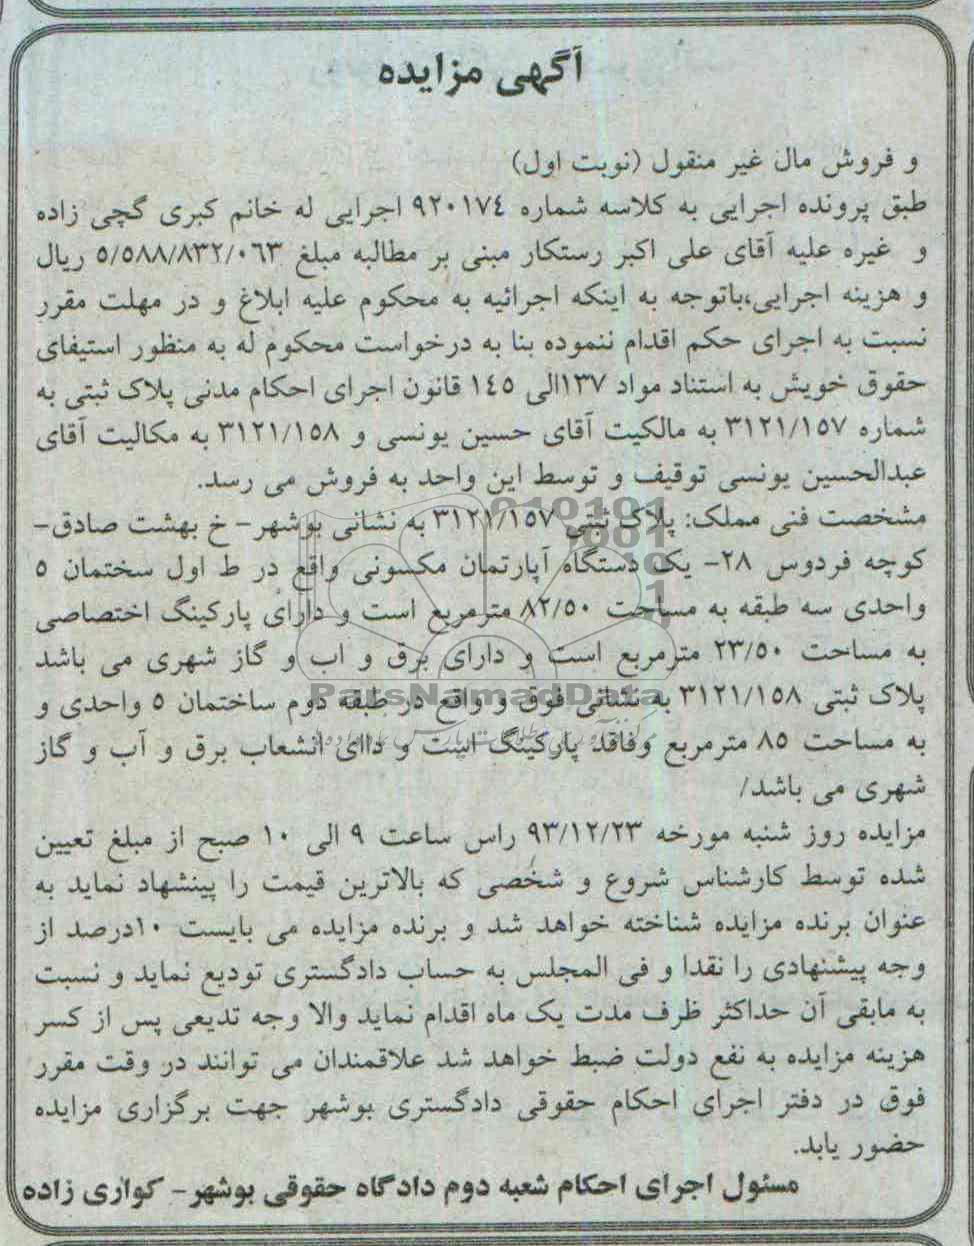 آگهی مزایده
و فروش مال غیر منقول (نوبت اول)
طبق پرونده اجرایی به کلاسه شماره ۹۲۰۱۷٤ اجرایی له خانم کبری گچی زاده
و غیره علیه آقای علی اکبر رستکار مبنی بر مطالبه مبلغ ۵/۵۸۸/۸۳۲/۰۶۳ ریال
و هزینه اجرایی،باتوجه به اینکه اجرائیه به محکوم علیه ابلاغ و در مهلت مقرر
نسبت به اجرای حکم اقدام ننموده بنا به درخواست محکوم له به منظور استیفای
حقوق خویش به استناد مواد ۱۳۷الی ۱٤۵ قانون اجرای احکام مدنی پلاک ثبتی به
شماره ۳۱۲۱/۱۵۷ به مالکیت آقای حسین یونسی و ۳۱۲۱/۱۵۸ به مکالیت آقای
عبدالحسین یونسی توقیف و توسط این واحد به فروش می رسد.
مشخصت فنی مملک: پلاک ثبتی ۳۱۲۱/۱۵۷ به نشانی بوشهر- خ بهشت صادق-
کوچه فردوس ۲۸- یک دستگاه آپارتمان مکسونی واقع در ط اول سختمان ۵
واحدی سه طبقه به مساحت ۸۲/۵۰ مترمربع است و دارای پارکینگ اختصاصی
به مساحت ۲۳/۵۰ مترمربع است و دارای برق و اب و گاز شهری می باشد
پلاک ثبتی ۳۱۲۱/۱۵۸ به نشانی فوق و واقع در طبقه دوم ساختمان ۵ واحدی و
به مساحت ۸۵ مترمربع وفاقد پارکینگ است و داای انشعاب برق و آب و گاز
شهری می باشد/
مزایده روز شنبه مورخه ۹۳/۱۲/۲۳ راس ساعت ۹ الی ۱۰ صبح از مبلغ تعیین
شده توسط کارشناس شروع و شخصی که بالاترین قیمت را پینشهاد نماید به
عنوان برنده مزایده شناخته خواهد شد و برنده مزایده می بایست ۱۰درصد از
وجه پیشنهادی را نقدا و فی المجلس به حساب دادگستری تودیع نماید و نسبت
به مابقی آن حداکثر ظرف مدت یک ماه اقدام نماید والا وجه تدیعی پس از کسر
هزینه مزایده به نفع دولت ضبط خواهد شد علاقمندان می توانند در وقت مقرر
فوق در دفتر اجرای احکام حقوقی دادگستری بوشهر جهت برگزاری مزایده
حضور یابد.
مسئول اجرای احکام شعبه دوم دادگاه حقوقی بوشهر- کواری زاده
ParsNamadData